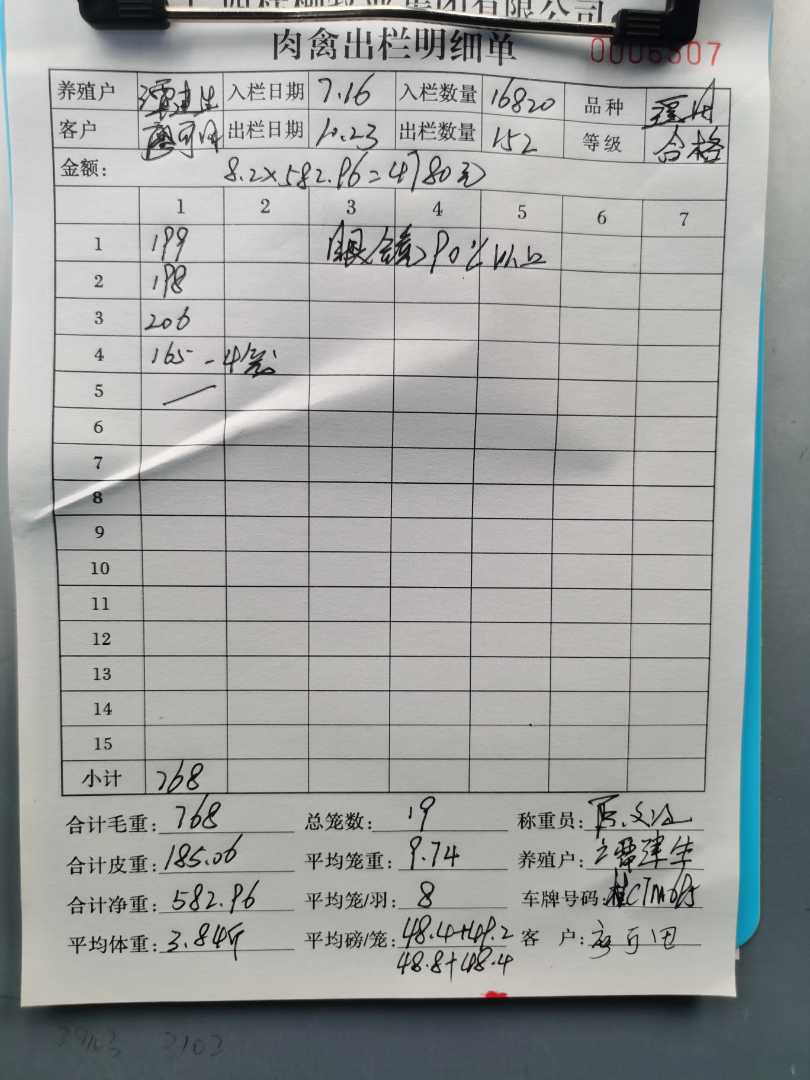 集团有限公司
肉禽出栏明细单 0006307
养殖户 入栏日期 7.16 入栏数量 16820 品种
客户 出栏日期 10.23 出栏数量 152 等级 合格
金额: 8.2×582.96=4780元
1 2 3 4 5 6 7
1 199 眼镜>90%以上
2 198
3 206
4 165-4笼
5
6
7
8
9
10
11
12
13
14
15
小计 768
合计毛重: 768 总笼数: 19 称重员:
合计皮重: 185.06 平均笼重: 9.74 养殖户: 覃建生
合计净重: 582.96 平均笼/羽: 8 车牌号码:
平均体重: 3.84斤 平均磅/笼: 48.4+49.2 客 户:
48.8+48.4